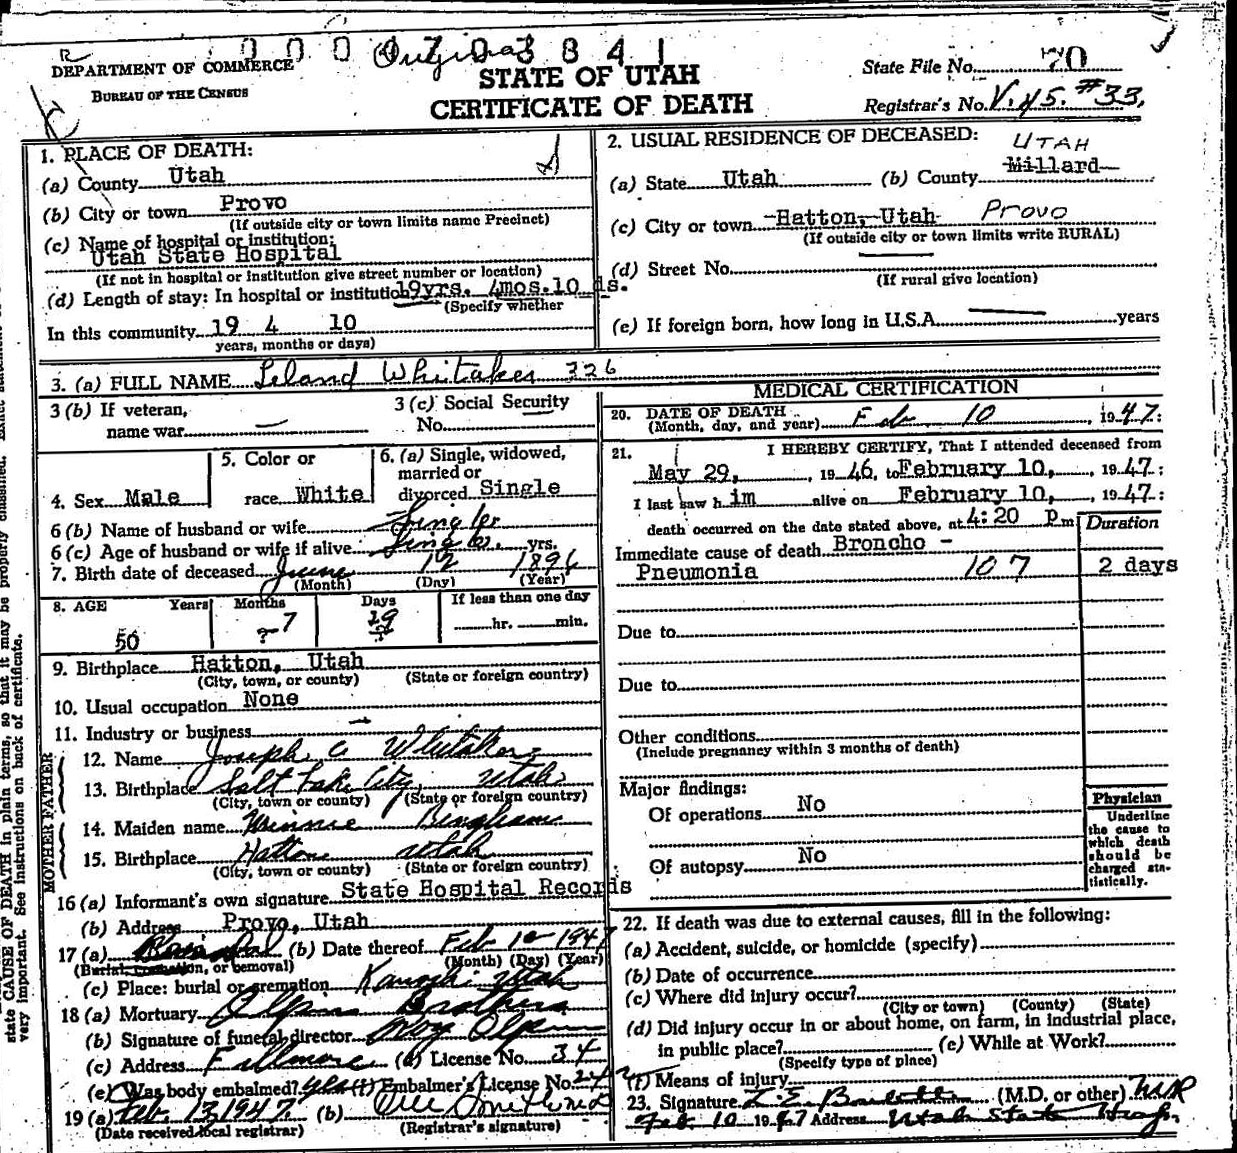 000 Original 0 8 4 1
DEPARTMENT OF COMMERCE
BUREAU OF THE CENSUS
STATE OF UTAH
CERTIFICATE OF DEATH
State File No. 70
Registrar's No. V. 45. #33,
1. PLACE OF DEATH:
(a) County Utah
(b) City or town Provo
(If outside city or town limits name Precinct)
(c) Name of hospital or institution:
Utah State Hospital
(If not in hospital or institution give street number or location)
(d) Length of stay: In hospital or institution 19yrs. 4mos. 10 ds.
(Specify whether
In this community 19 4 10
years, months or days)
2. USUAL RESIDENCE OF DECEASED:
UTAH
(a) State Utah (b) County Millard
(c) City or town Hatton, Utah Provo
(If outside city or town limits write RURAL)
(d) Street No.
(If rural give location)
(e) If foreign born, how long in U.S.A. years
3. (a) FULL NAME Leland Whitaker 326
3 (b) If veteran,
name war
3 (c) Social Security
No.
4. Sex Male
5. Color or
race White
6. (a) Single, widowed,
married or
divorced Single
6 (b) Name of husband or wife Single
6 (c) Age of husband or wife if alive Single yrs.
7. Birth date of deceased June 12 1896
(Month) (Day) (Year)
8. AGE Years Months Days If less than one day
50 ? 7 29 ? hr. min.
9. Birthplace Hatton, Utah
(City, town, or county) (State or foreign country)
10. Usual occupation None
11. Industry or business
FATHER
12. Name Joseph C Whitaker
13. Birthplace Salt Lake City, Utah
(City, town or county) (State or foreign country)
MOTHER
14. Maiden name Minnie Bingham
15. Birthplace Hatton Utah
(City, town or county) (State or foreign country)
16 (a) Informant's own signature State Hospital Records
(b) Address Provo, Utah
17 (a) (b) Date thereof Feb 10 1947
(Burial, cremation, or removal) (Month) (Day) (Year)
(c) Place: burial or cremation Kanosh, Utah
18 (a) Mortuary Olpin Brothers
(b) Signature of funeral director Roy Olpin
(c) Address Fillmore (d) License No. 34
(e) Was body embalmed? yes (f) Embalmer's License No. 24
19 (a) Feb. 13, 1947 (b)
(Date received local registrar) (Registrar's signature)
MEDICAL CERTIFICATION
20. DATE OF DEATH
(Month, day, and year) Feb 10, 1947:
21. I HEREBY CERTIFY, That I attended deceased from
May 29, 1946, to February 10, 1947:
I last saw him alive on February 10, 1947:
death occurred on the date stated above, at 4:20 Pm
Duration
Immediate cause of death Broncho -
Pneumonia 107 2 days
Due to
Due to
Other conditions
(Include pregnancy within 3 months of death)
Major findings:
Of operations No
Of autopsy No
Physician
Underline
the cause to
which death
should be
charged sta-
tistically.
22. If death was due to external causes, fill in the following:
(a) Accident, suicide, or homicide (specify)
(b) Date of occurrence
(c) Where did injury occur?
(City or town) (County) (State)
(d) Did injury occur in or about home, on farm, in industrial place,
in public place? (e) While at Work?
(Specify type of place)
(f) Means of injury
23. Signature (M.D. or other)
Feb. 10 1947 Address Utah State Hosp.
state CAUSE OF DEATH in plain terms, so that it may be properly classified.
very important. See instructions on back of certificate.